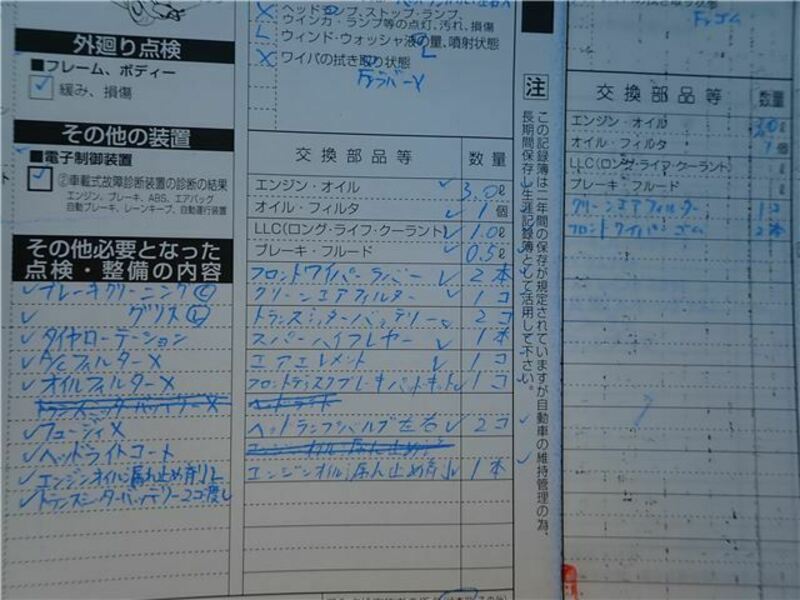 ヘッドランプ、ストップ・ランプ、
ウインカ・ランプ等の点灯、汚れ、損傷
ウィンド・ウォッシャ液の量、噴射状態
L
ワイパの拭き取り状態
Frラバー X
外廻り点検
■フレーム、ボディー
緩み、損傷
その他の装置
■電子制御装置
②車載式故障診断装置の診断の結果
エンジン、ブレーキ、ABS、エアバッグ
自動ブレーキ、レーンキープ、自動運行装置
その他必要となった
点検・整備の内容
ブレーキクリーニング C
グリス L
タイヤローテーション
A/Cフィルター X
オイルフィルター X
トランスミッターバッテリー X
ヒュージィ X
ヘッドライトコート
エンジンオイル漏れ止め剤 L
トランスミッターバッテリー2コ渡し
交換部品等 数量
エンジン・オイル 3.0ℓ
オイル・フィルタ 1個
LLC(ロング・ライフ・クーラント) 1.0ℓ
ブレーキ・フルード 0.5ℓ
フロントワイパーラバー 2本
クリーンエアフィルター 1コ
トランスミッターバッテリー 2コ
スパーハイフレヤー 1本
エアエレメント 1コ
フロントディスクブレーキパットキット 1コ
ヘッドランプバルブ左右 2コ
エンジンオイル漏れ止め剤 1本
注
この記録簿は二年間の保存が規定されていますが自動車の維持管理の為、
長期間保存し生涯記録簿として活用して下さい。
Frゴム
交換部品等 数量
エンジン・オイル 3.0ℓ
オイル・フィルタ 1個
LLC(ロング・ライフ・クーラント)
ブレーキ・フルード
クリーンエアフィルター 1コ
フロントワイパーゴム 2本